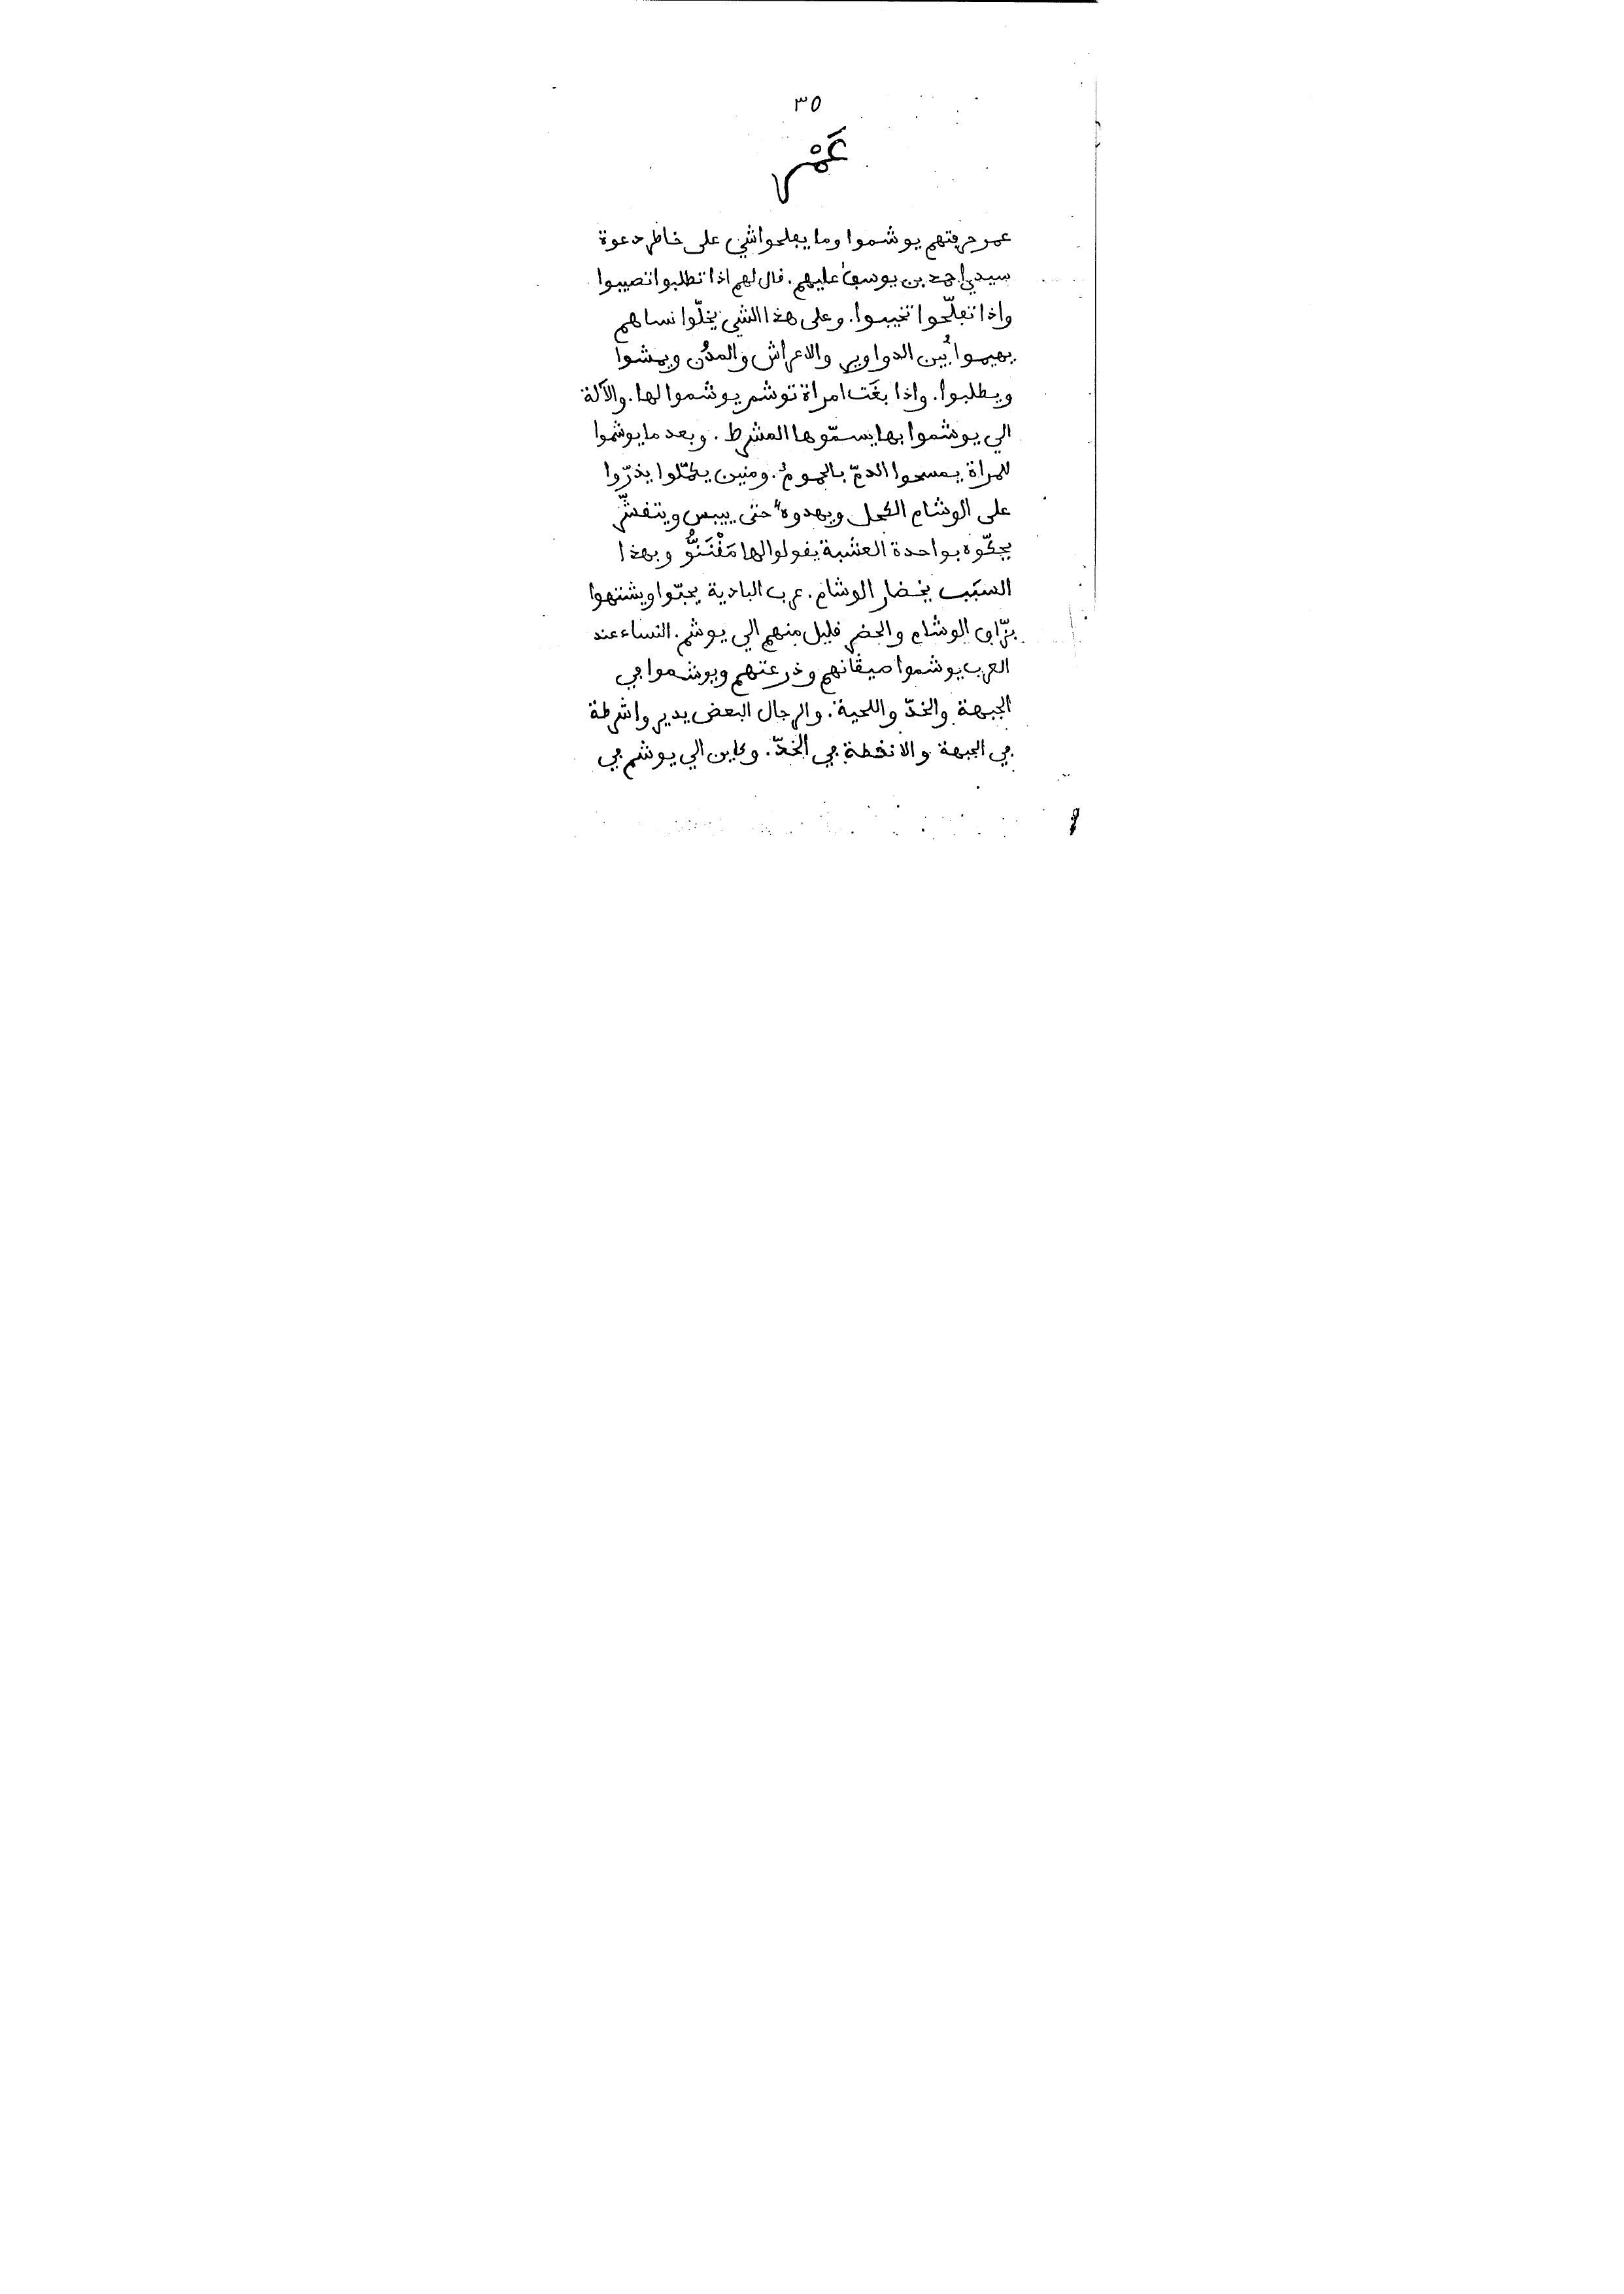 ٣٥
عَمْر
عمر حرفتهم يوشموا وما يفلحواشي على خاطر دعوة
سيدي احمد بن يوسف عليهم. فال لهم اذا تطلبوا تصيبوا
واذا تفلّحوا تخيبوا. وعلى هذا الشي يخلّوا نساهم
يهيموا بين الدواوير والاعراش والمدُن ويمشوا
ويطلبوا. واذا بغَت امراة توشم يوشموا لها. والآلة
الي يوشموا بها يسمّوها المشرط. وبعد ما يوشموا
للمراة يمسحوا الدمّ بالحموم. ومنين يكمّلوا يذرّوا
على الوشام الكحل ويهدوه حتى ييبس ويتفشّر
يحكّوه بواحدة العشبة يفولوا لها مَفْنَنُّو وبهذا
السبَب يخضار الوشام. عرب البادية يحبّوا ويشتهوا
بزّاف الوشام والحضر فليل منهم الي يوشم. النساء عند
العرب يوشموا سيفانهم وذرعتهم ويوشموا في
الجبهة والخدّ واللحية. والرجال البعض يديروا شرطة
في الجبهة والا نفطة في الخدّ. وكاين الي يوشم في